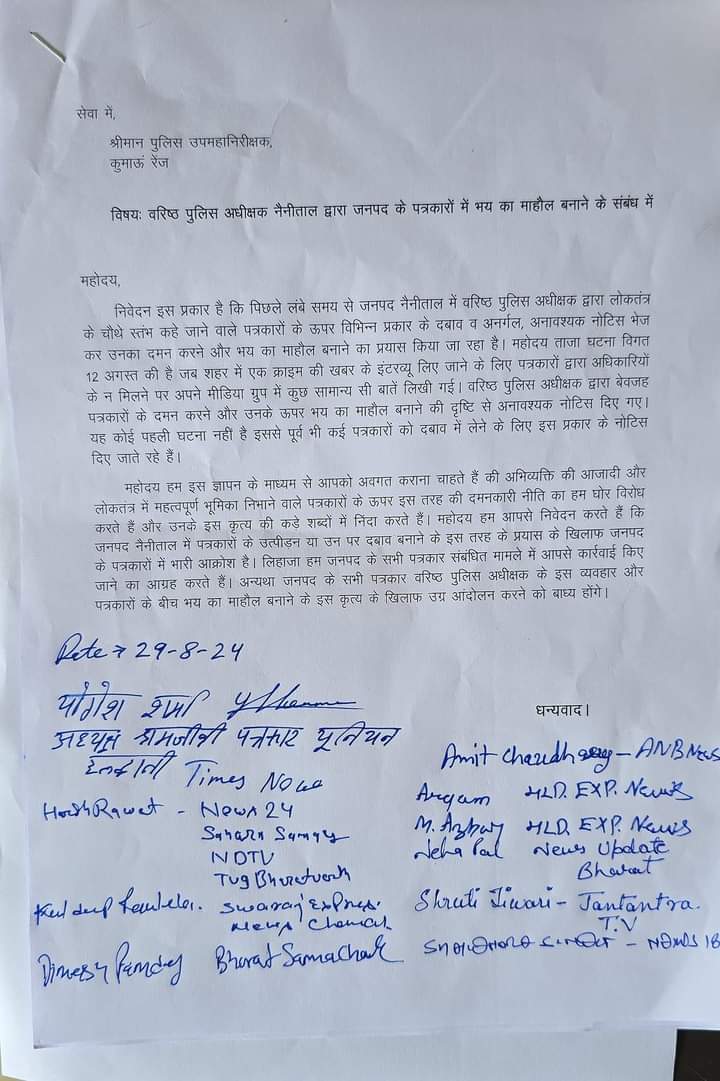 सेवा में,
श्रीमान पुलिस उपमहानिरीक्षक,
कुमाऊं रेंज
विषय: वरिष्ठ पुलिस अधीक्षक नैनीताल द्वारा जनपद के पत्रकारों में भय का माहौल बनाने के संबंध में
महोदय,
निवेदन इस प्रकार है कि पिछले लंबे समय से जनपद नैनीताल में वरिष्ठ पुलिस अधीक्षक द्वारा लोकतंत्र
के चौथे स्तंभ कहे जाने वाले पत्रकारों के ऊपर विभिन्न प्रकार के दबाव व अनर्गल, अनावश्यक नोटिस भेज
कर उनका दमन करने और भय का माहौल बनाने का प्रयास किया जा रहा है। महोदय ताजा घटना विगत
12 अगस्त की है जब शहर में एक क्राइम की खबर के इंटरव्यू लिए जाने के लिए पत्रकारों द्वारा अधिकारियों
के न मिलने पर अपने मीडिया ग्रुप में कुछ सामान्य सी बातें लिखी गई। वरिष्ठ पुलिस अधीक्षक द्वारा बेवजह
पत्रकारों के दमन करने और उनके ऊपर भय का माहौल बनाने की दृष्टि से अनावश्यक नोटिस दिए गए।
यह कोई पहली घटना नहीं है इससे पूर्व भी कई पत्रकारों को दबाव में लेने के लिए इस प्रकार के नोटिस
दिए जाते रहे हैं।
महोदय हम इस ज्ञापन के माध्यम से आपको अवगत कराना चाहते हैं की अभिव्यक्ति की आजादी और
लोकतंत्र में महत्वपूर्ण भूमिका निभाने वाले पत्रकारों के ऊपर इस तरह की दमनकारी नीति का हम घोर विरोध
करते हैं और उनके इस कृत्य की कडे शब्दों में निंदा करते हैं। महोदय हम आपसे निवेदन करते हैं कि
जनपद नैनीताल में पत्रकारों के उत्पीड़न या उन पर दबाव बनाने के इस तरह के प्रयास के खिलाफ जनपद
के पत्रकारों में भारी आक्रोश है। लिहाजा हम जनपद के सभी पत्रकार संबंधित मामले में आपसे कार्रवाई किए
जाने का आग्रह करते हैं। अन्यथा जनपद के सभी पत्रकार वरिष्ठ पुलिस अधीक्षक के इस व्यवहार और
पत्रकारों के बीच भय का माहौल बनाने के इस कृत्य के खिलाफ उग्र आंदोलन करने को बाध्य होंगे।
Date → 29-8-24
धन्यवाद।
योगेश शर्मा
अध्यक्ष श्रमजीवी पत्रकार यूनियन
हल्द्वानी Times Now
Harish Rawat - News 24
Sahara Samay
NDTV
Kuldeep Swaraj Express
News Channel
Dinesh Pandey Bharat Samachar
Amit Chaudhary - ANB News
HLD. EXP. News
M. Azhar HLD. EXP. News
Neha Pal News Update
Bharat
Shruti Tiwari - Jantantra
T.V
- News 18